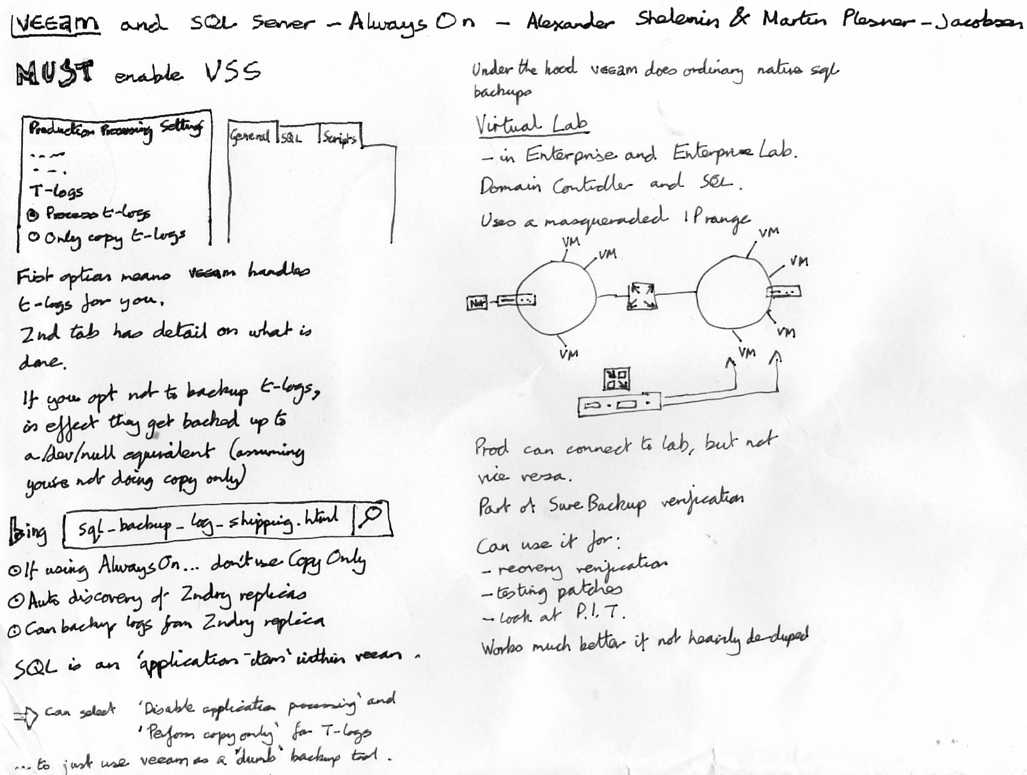 veeam and SQL Server - Always On - Alexander Shelemin & Martin Plesner-Jacobsen
MUST enable VSS
Production Processing Setting
T-logs
Process t-logs
Only copy t-logs
General
SQL
Scripts
First option means veeam handles
t-logs for you.
2nd tab has detail on what is
done.
If you opt not to backup t-logs,
in effect they get backed up to
a /dev/null equivalent (assuming
you're not doing copy only)
bing
sql_backup_log_shipping.html
If using Always On... don't use Copy Only
Auto discovery of 2ndry replicas
Can backup logs from 2ndry replica
SQL is an 'application-item' within veeam.
⇒ Can select 'Disable application processing' and
'Perform copy only' for T-logs
...to just use veeam as a "dumb" backup tool.
Under the hood veeam does ordinary native sql
backups
Virtual Lab
- in Enterprise and Enterprise Lab.
Domain Controller and SQL.
Uses a masqueraded IP range
VM
VM
VM
VM
VM
VM
VM
VM
Prod can connect to lab, but not
vice versa.
Part of Sure Backup verification
Can use it for:
- recovery verification
- testing patches
- Look at P.I.T.
Works much better if not heavily de-duped